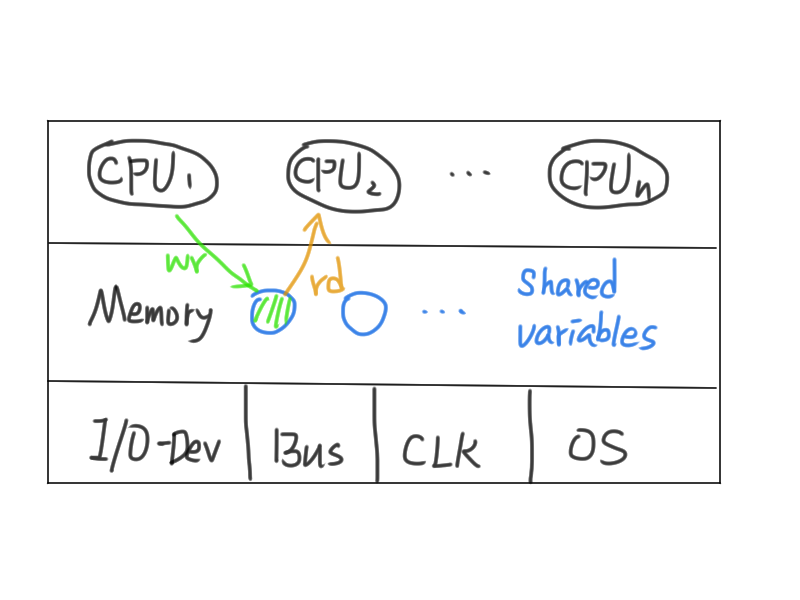 CPU₁ CPU₂ ... CPUn
wr rd
Memory ... Shared
variables
I/O-Dev Bus CLK OS